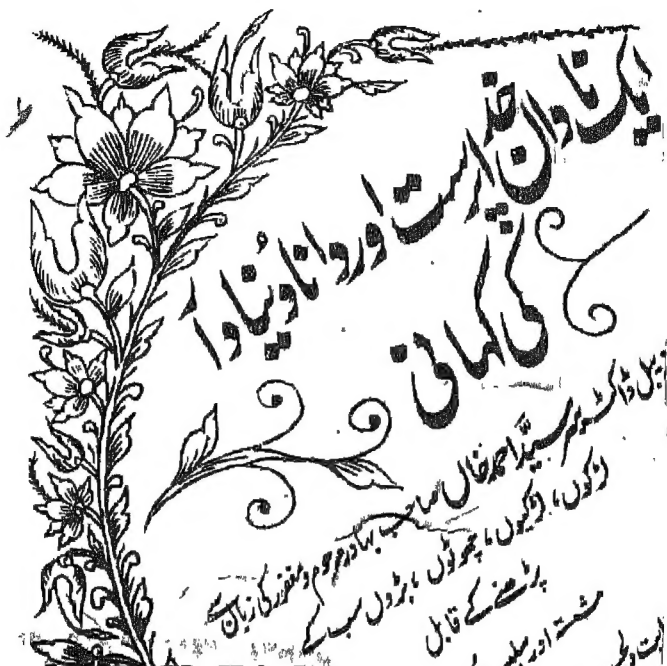 ایک نادان خدا پرست اور دانا دنیا دا
کی کہانی
ڈاکٹر سر سیّد احمد خاں صاحب بہادر مرحوم و مغفور کی زبان سے
لڑکوں، لڑکیوں، چھوٹوں، بڑوں سب کے
پڑھنے کے قابل
شستہ اور